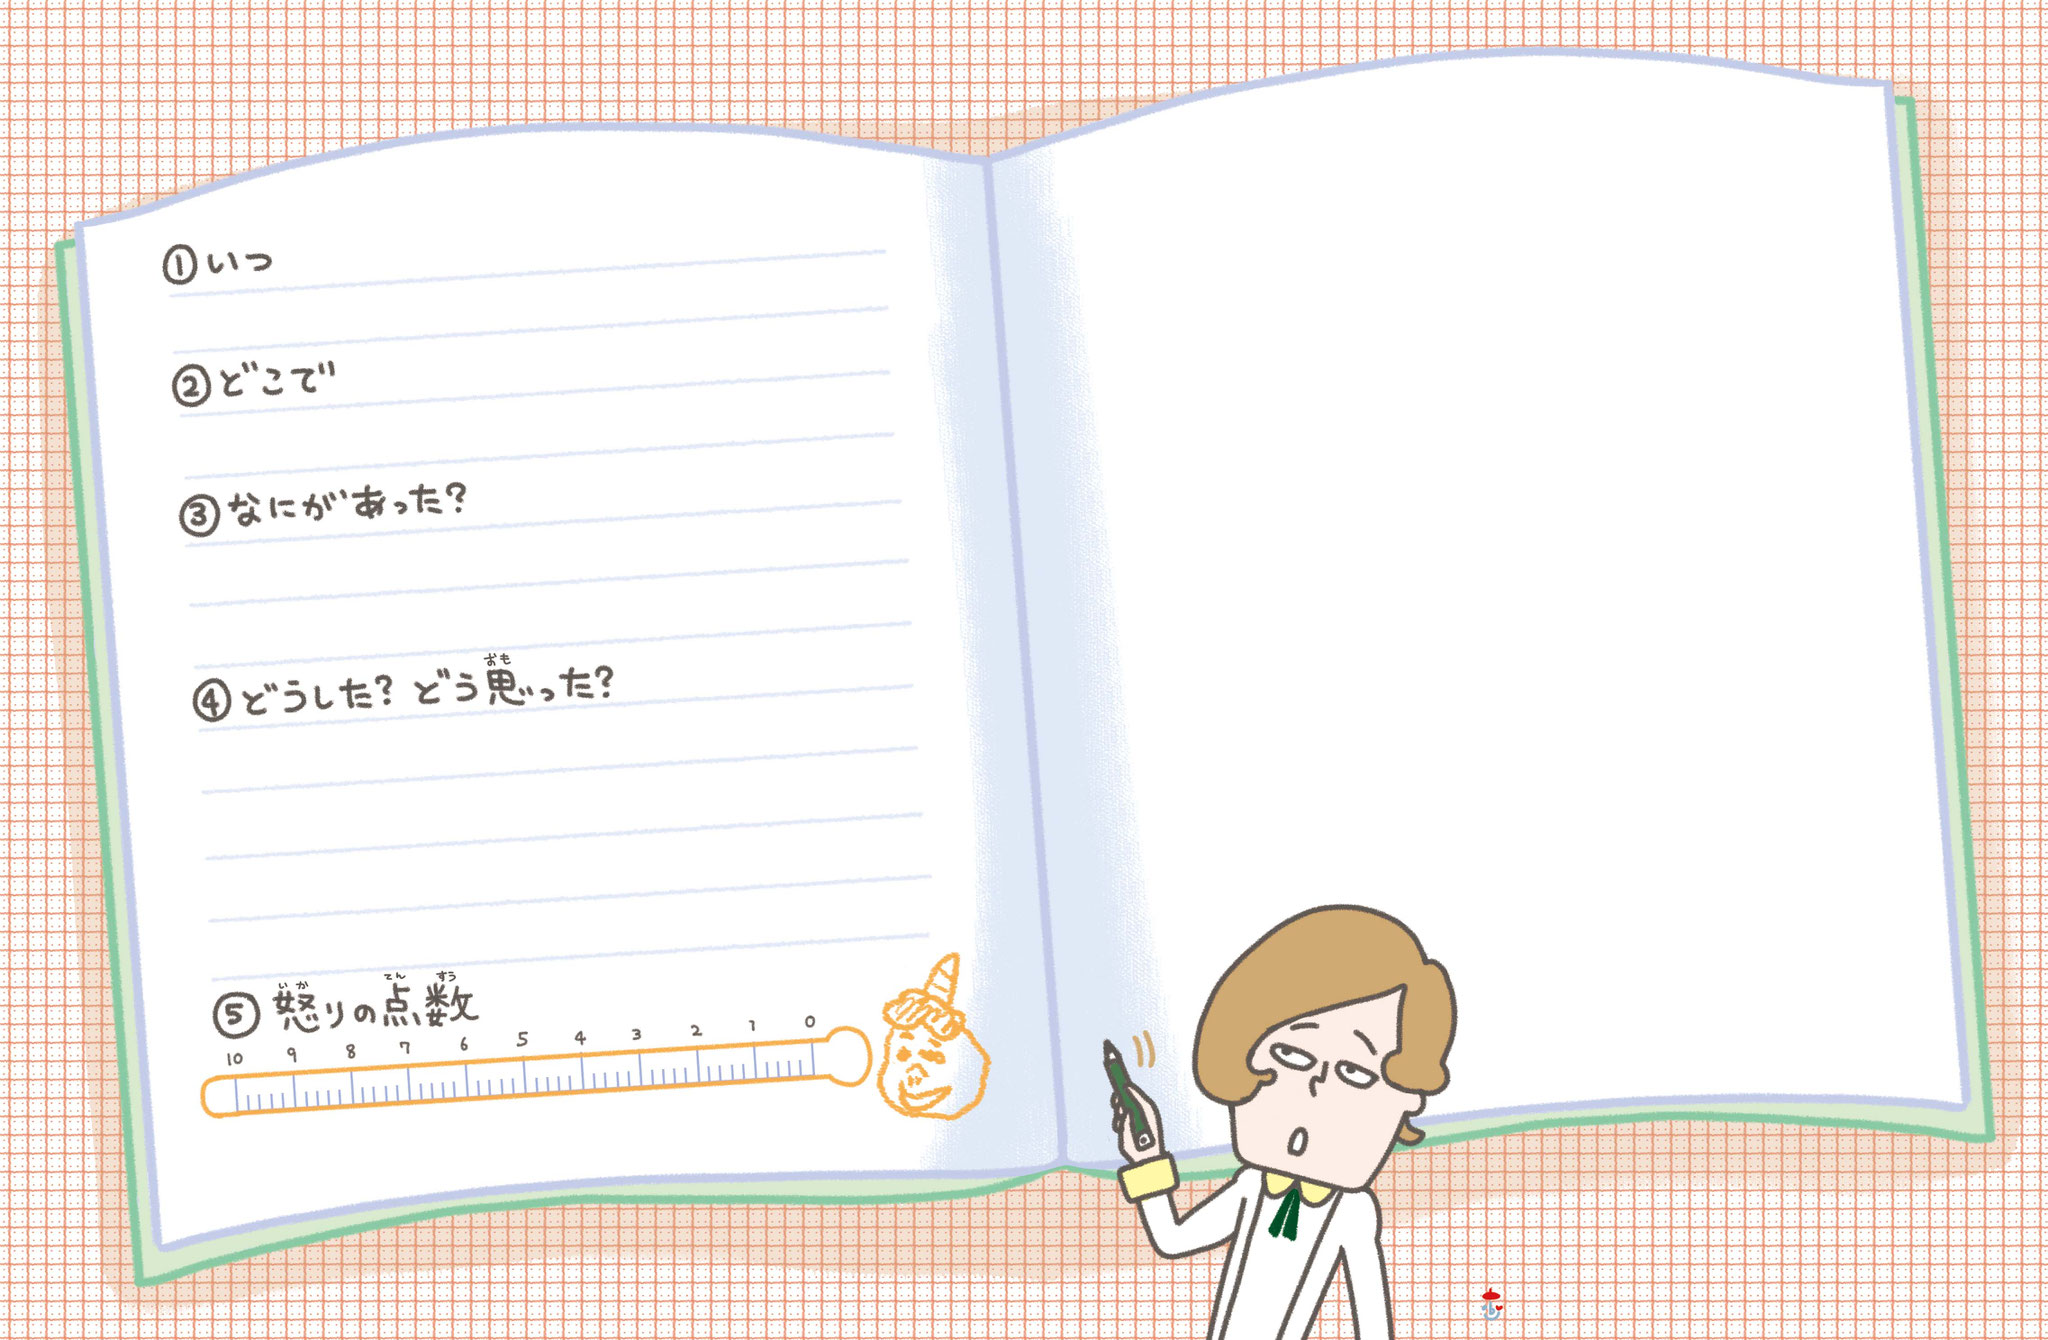 ①いつ
②どこで
③なにがあった?
④どうした? どう思った?
おも
⑤怒りの点数
いか てん すう
10 9 8 7 6 5 4 3 2 1 0